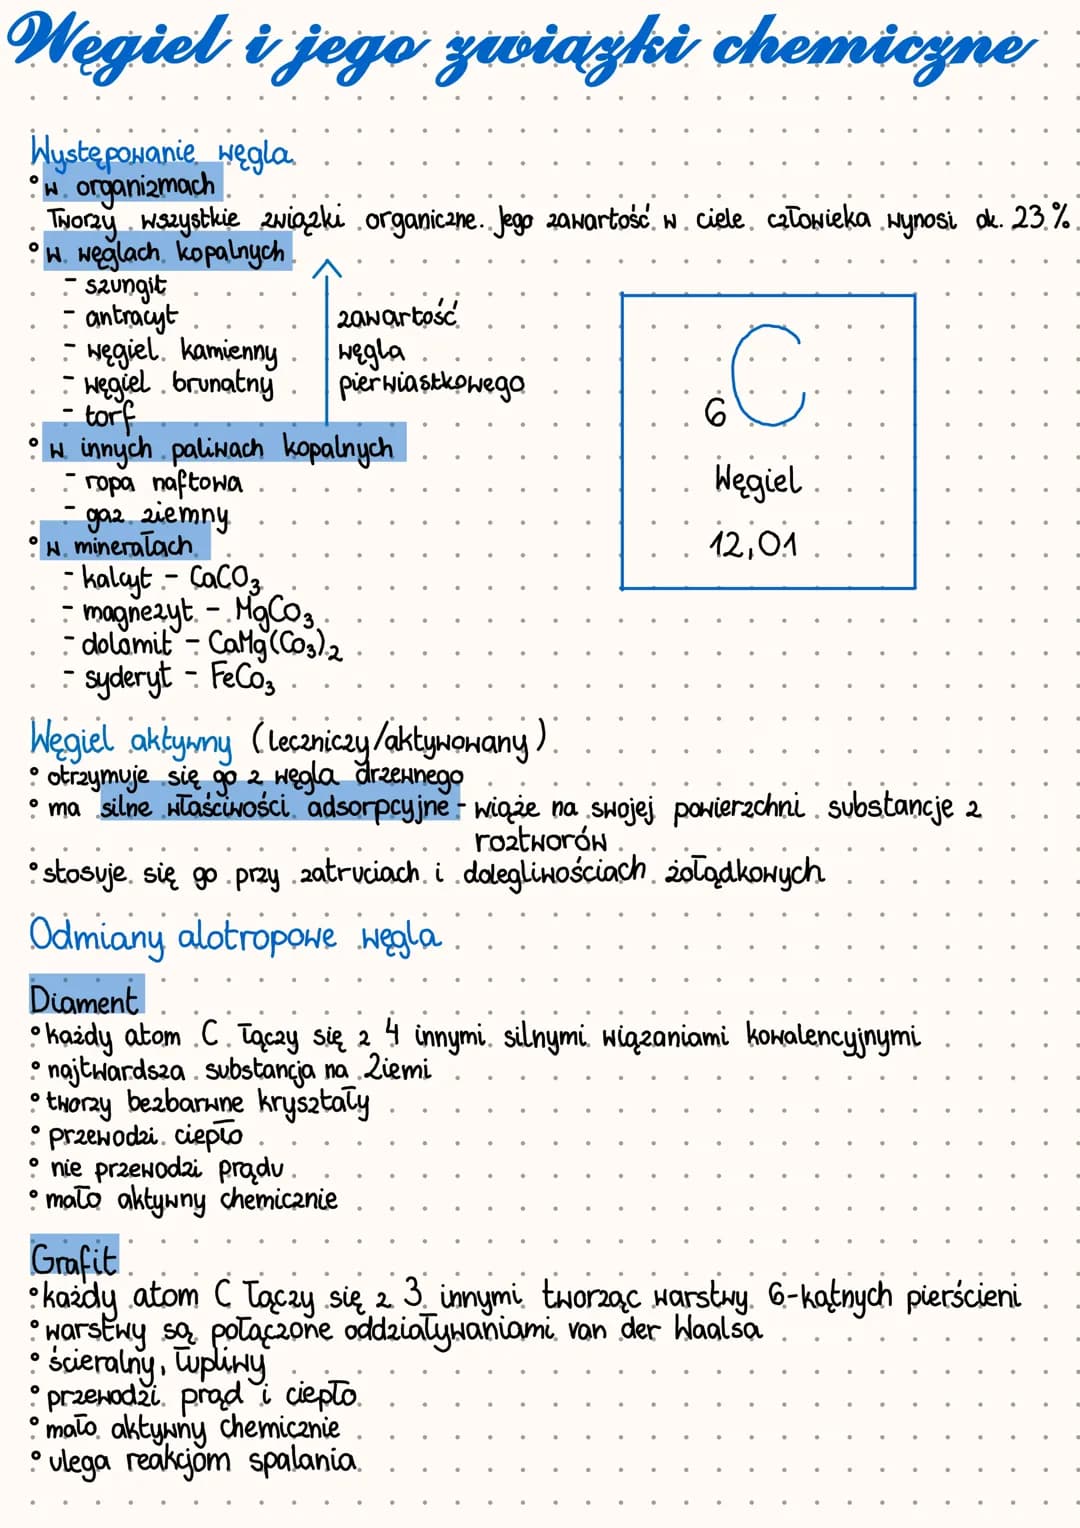 Węgiel i jego związki chemiczne
Występowanie węgla
° w organizmach
Tworzy wszystkie związki organiczne. Jego zawartość w ciele człowieka wynosi ok. 23%.
° w węglach kopalnych
- szungit
- antracyt
- węgiel kamienny
- węgiel brunatny
- torf
zawartość
węgla
pierwiastkowego
6 C
Węgiel
12,01
° w innych paliwach kopalnych
- ropa naftowa
- gaz ziemny
° w minerałach
- kalcyt - CaCO₃
- magnezyt - MgCO₃
- dolomit - CaMg(CO₃)₂
- syderyt - FeCO₃
Węgiel aktywny (leczniczy/aktywowany)
° otrzymuje się go z węgla drzewnego
° ma silne właściwości adsorpcyjne - wiąże na swojej powierzchni substancje z
roztworów
° stosuje się go przy zatruciach i dolegliwościach żołądkowych
Odmiany alotropowe węgla
Diament
° każdy atom C łączy się z 4 innymi silnymi wiązaniami kowalencyjnymi
° najtwardsza substancja na Ziemi
° tworzy bezbarwne kryształy
° przewodzi ciepło
° nie przewodzi prądu
° mało aktywny chemicznie
Grafit
° każdy atom C łączy się z 3 innymi tworząc warstwy 6-kątnych pierścieni
° warstwy są połączone oddziaływaniami van der Waalsa
° ścieralny, łupliwy
° przewodzi prąd i ciepło
° mało aktywny chemicznie
° ulega reakcjom spalania